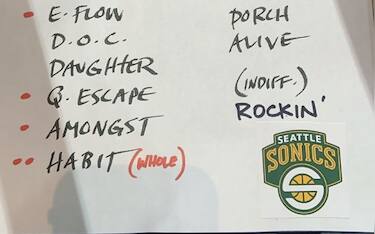 • E. FLOW
D.O.C.
DAUGHTER
• Q. ESCAPE
• AMONGST
•• HABIT (WHOLE)
PORCH
ALIVE
(INDIFF.)
ROCKIN'
SEATTLE
SONICS